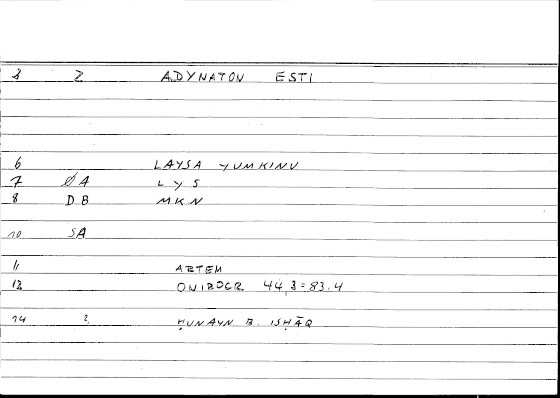 3 2 ADYNATON ESTI
6 LAYSA YUMKINU
7 ØA LYS
8 DB MKN
10 SA
11 ARTEM
12 ONIROCR 44,3=83.4
14 2 ḤUNAYN B. ISḤĀQ